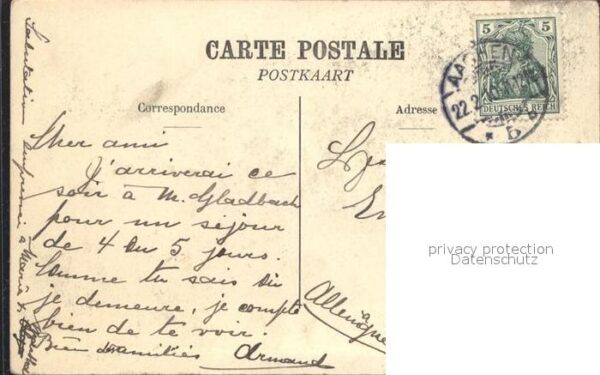 CARTE POSTALE
POSTKAART
Correspondance
Adresse
5 5
DEUTSCHES REICH
AACHEN
22.2
* 5
Cher ami
J'arriverai ce
soir à M. Gladbach
pour un séjour
de 4 ou 5 jours.
Comme tu sais où
je demeure, je compte
bien de te voir.
Bien d'amitiés Armand
Allemagne
Salutation à Maria
privacy protection
Datenschutz